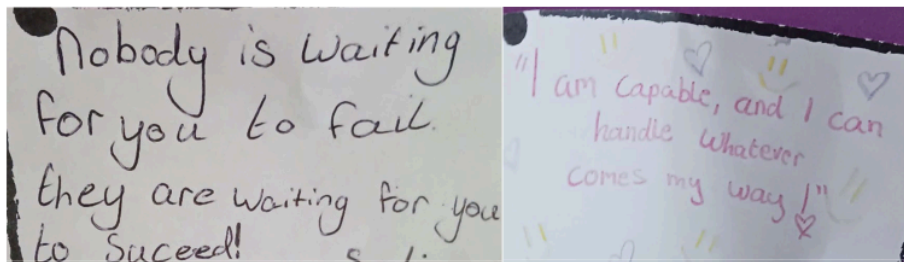 Nobody is waiting
for you to fail.
they are waiting for you
to Suceed!
"I am capable, and I can
handle whatever
comes my way!"